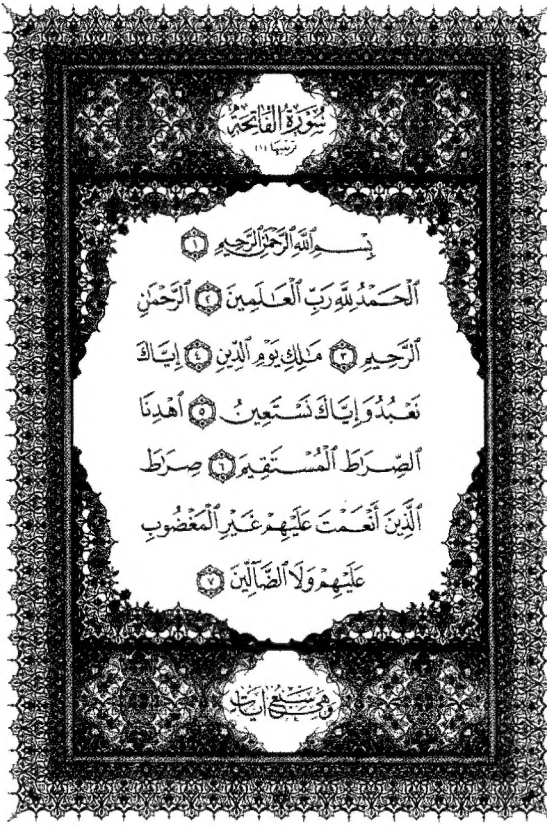 سُورَةُ الْفَاتِحَةِ
ترتيبها (١)
بِسْمِ ٱللَّهِ ٱلرَّحْمَٰنِ ٱلرَّحِيمِ ١
ٱلْحَمْدُ لِلَّهِ رَبِّ ٱلْعَٰلَمِينَ ٢ ٱلرَّحْمَٰنِ
ٱلرَّحِيمِ ٣ مَٰلِكِ يَوْمِ ٱلدِّينِ ٤ إِيَّاكَ
نَعْبُدُ وَإِيَّاكَ نَسْتَعِينُ ٥ ٱهْدِنَا
ٱلصِّرَٰطَ ٱلْمُسْتَقِيمَ ٦ صِرَٰطَ
ٱلَّذِينَ أَنْعَمْتَ عَلَيْهِمْ غَيْرِ ٱلْمَغْضُوبِ
عَلَيْهِمْ وَلَا ٱلضَّآلِّينَ ٧
وهي سبع آيات